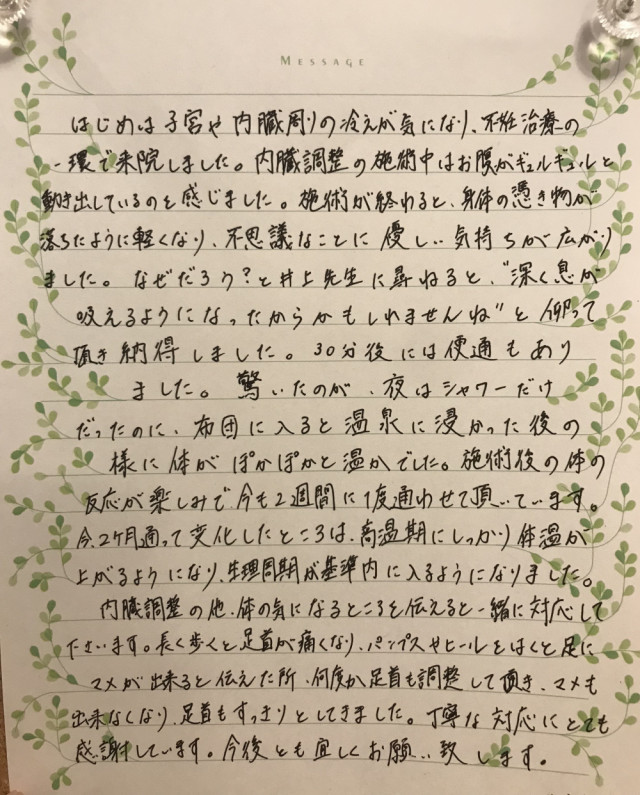 MESSAGE
はじめは子宮や内臓周りの冷えが気になり、不妊治療の
一環で来院しました。内臓調整の施術中はお腹がギュルギュルと
動き出しているのを感じました。施術が終わると、身体の憑き物が
落ちたように軽くなり、不思議なことに優しい気持ちが広がり
ました。なぜだろう?と井上先生に尋ねると、"深く息が
吸えるようになったからかもしれませんね"と仰って
頂き納得しました。30分後には便通もあり
ました。驚いたのが、夜はシャワーだけ
だったのに、布団に入ると温泉に浸かった後の
様に体がぽかぽかと温かでした。施術後の体の
反応が楽しみで今も2週間に1度通わせて頂いています。
今、2ヶ月通って変化したところは、高温期にしっかり体温が
上がるようになり、生理周期が基準内に入るようになりました。
内臓調整の他、体の気になるところを伝えると一緒に対応して
下さいます。長く歩くと足首が痛くなり、パンプスやヒールをはくと足に
マメが出来ると伝えた所、何度か足首も調整して頂き、マメも
出来なくなり、足首もすっきりとしてきました。丁寧な対応にとても
感謝しています。今後とも宜しくお願い致します。